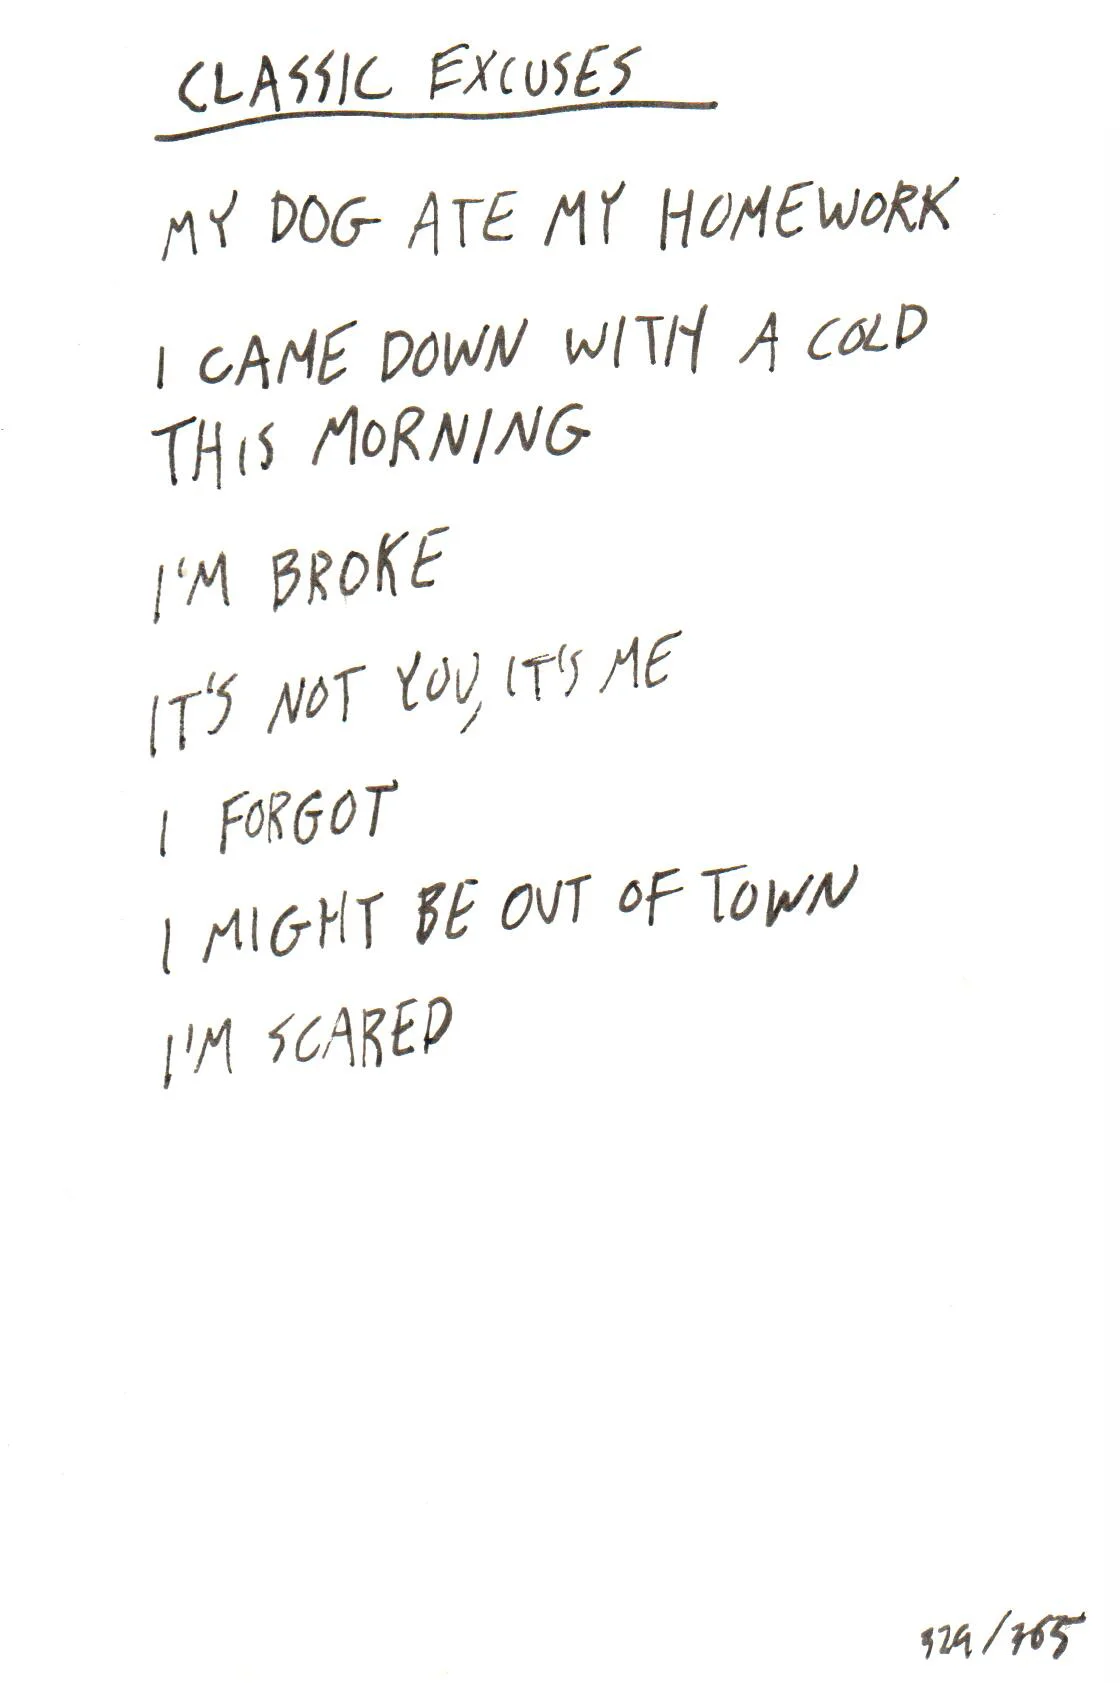 CLASSIC EXCUSES
MY DOG ATE MY HOMEWORK
I CAME DOWN WITH A COLD
THIS MORNING
I'M BROKE
IT'S NOT YOU, IT'S ME
I FORGOT
I MIGHT BE OUT OF TOWN
I'M SCARED
329/365